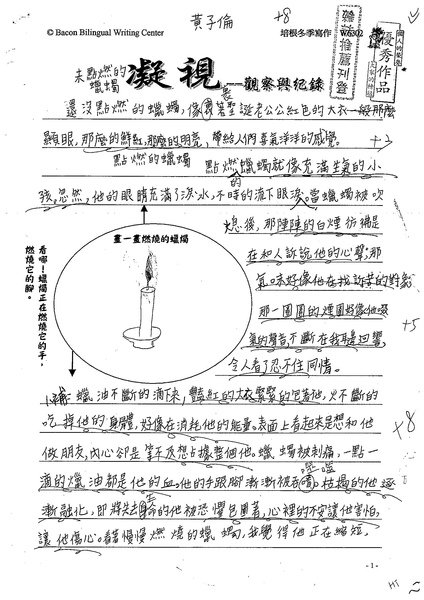 黃子倫
+8
© Bacon Bilingual Writing Center
培根冬季寫作 W6302
優秀作品
未點燃的蠟蠋
凝視
觀察與紀錄
還沒點燃的蠟蠋,像裹著聖誕老公公紅色的大衣一般那麼
顯眼,那麼的鮮紅,那麼的明亮,帶給人們喜氣洋洋的感覺。
+2
點燃的蠟蠋
點燃蠟蠋就像充滿生氣的小
孩,忽然,他的眼睛充滿了淚水,不時的流下眼淚。當蠟蠋被吹
熄後,那陣陣的白煙彷彿是
在和人訴說他的心聲;那
氣味好像他在找訴苦的對象
那一圈圈的煙圈好像他嘆
氣的聲音,不斷在我耳邊回響,
+5
令人看了忍不住同情。
畫一畫燃燒的蠟燭
看哪!蠟燭正在燃燒它的手,
燃燒它的腳。
蠟油不斷的滴下來,豔紅的大衣緊緊的包著他,火不斷的
吃掉他的身體,好像在消耗他的能量。表面上看起來是想和他
+8
做朋友,內心卻是等不及想占據整個他。蠟蠋被刺痛,一點一
滴的蠟油都是他的血,他的手跟腳漸漸被吞噬,枯楬的他逐
漸融化,即將失去生命的他被恐懼包圍著,心裡的不安讓他害怕,
讓他傷心。看著慢慢燃燒的蠟蠋,我覺得他正在縮短,
- 1 -